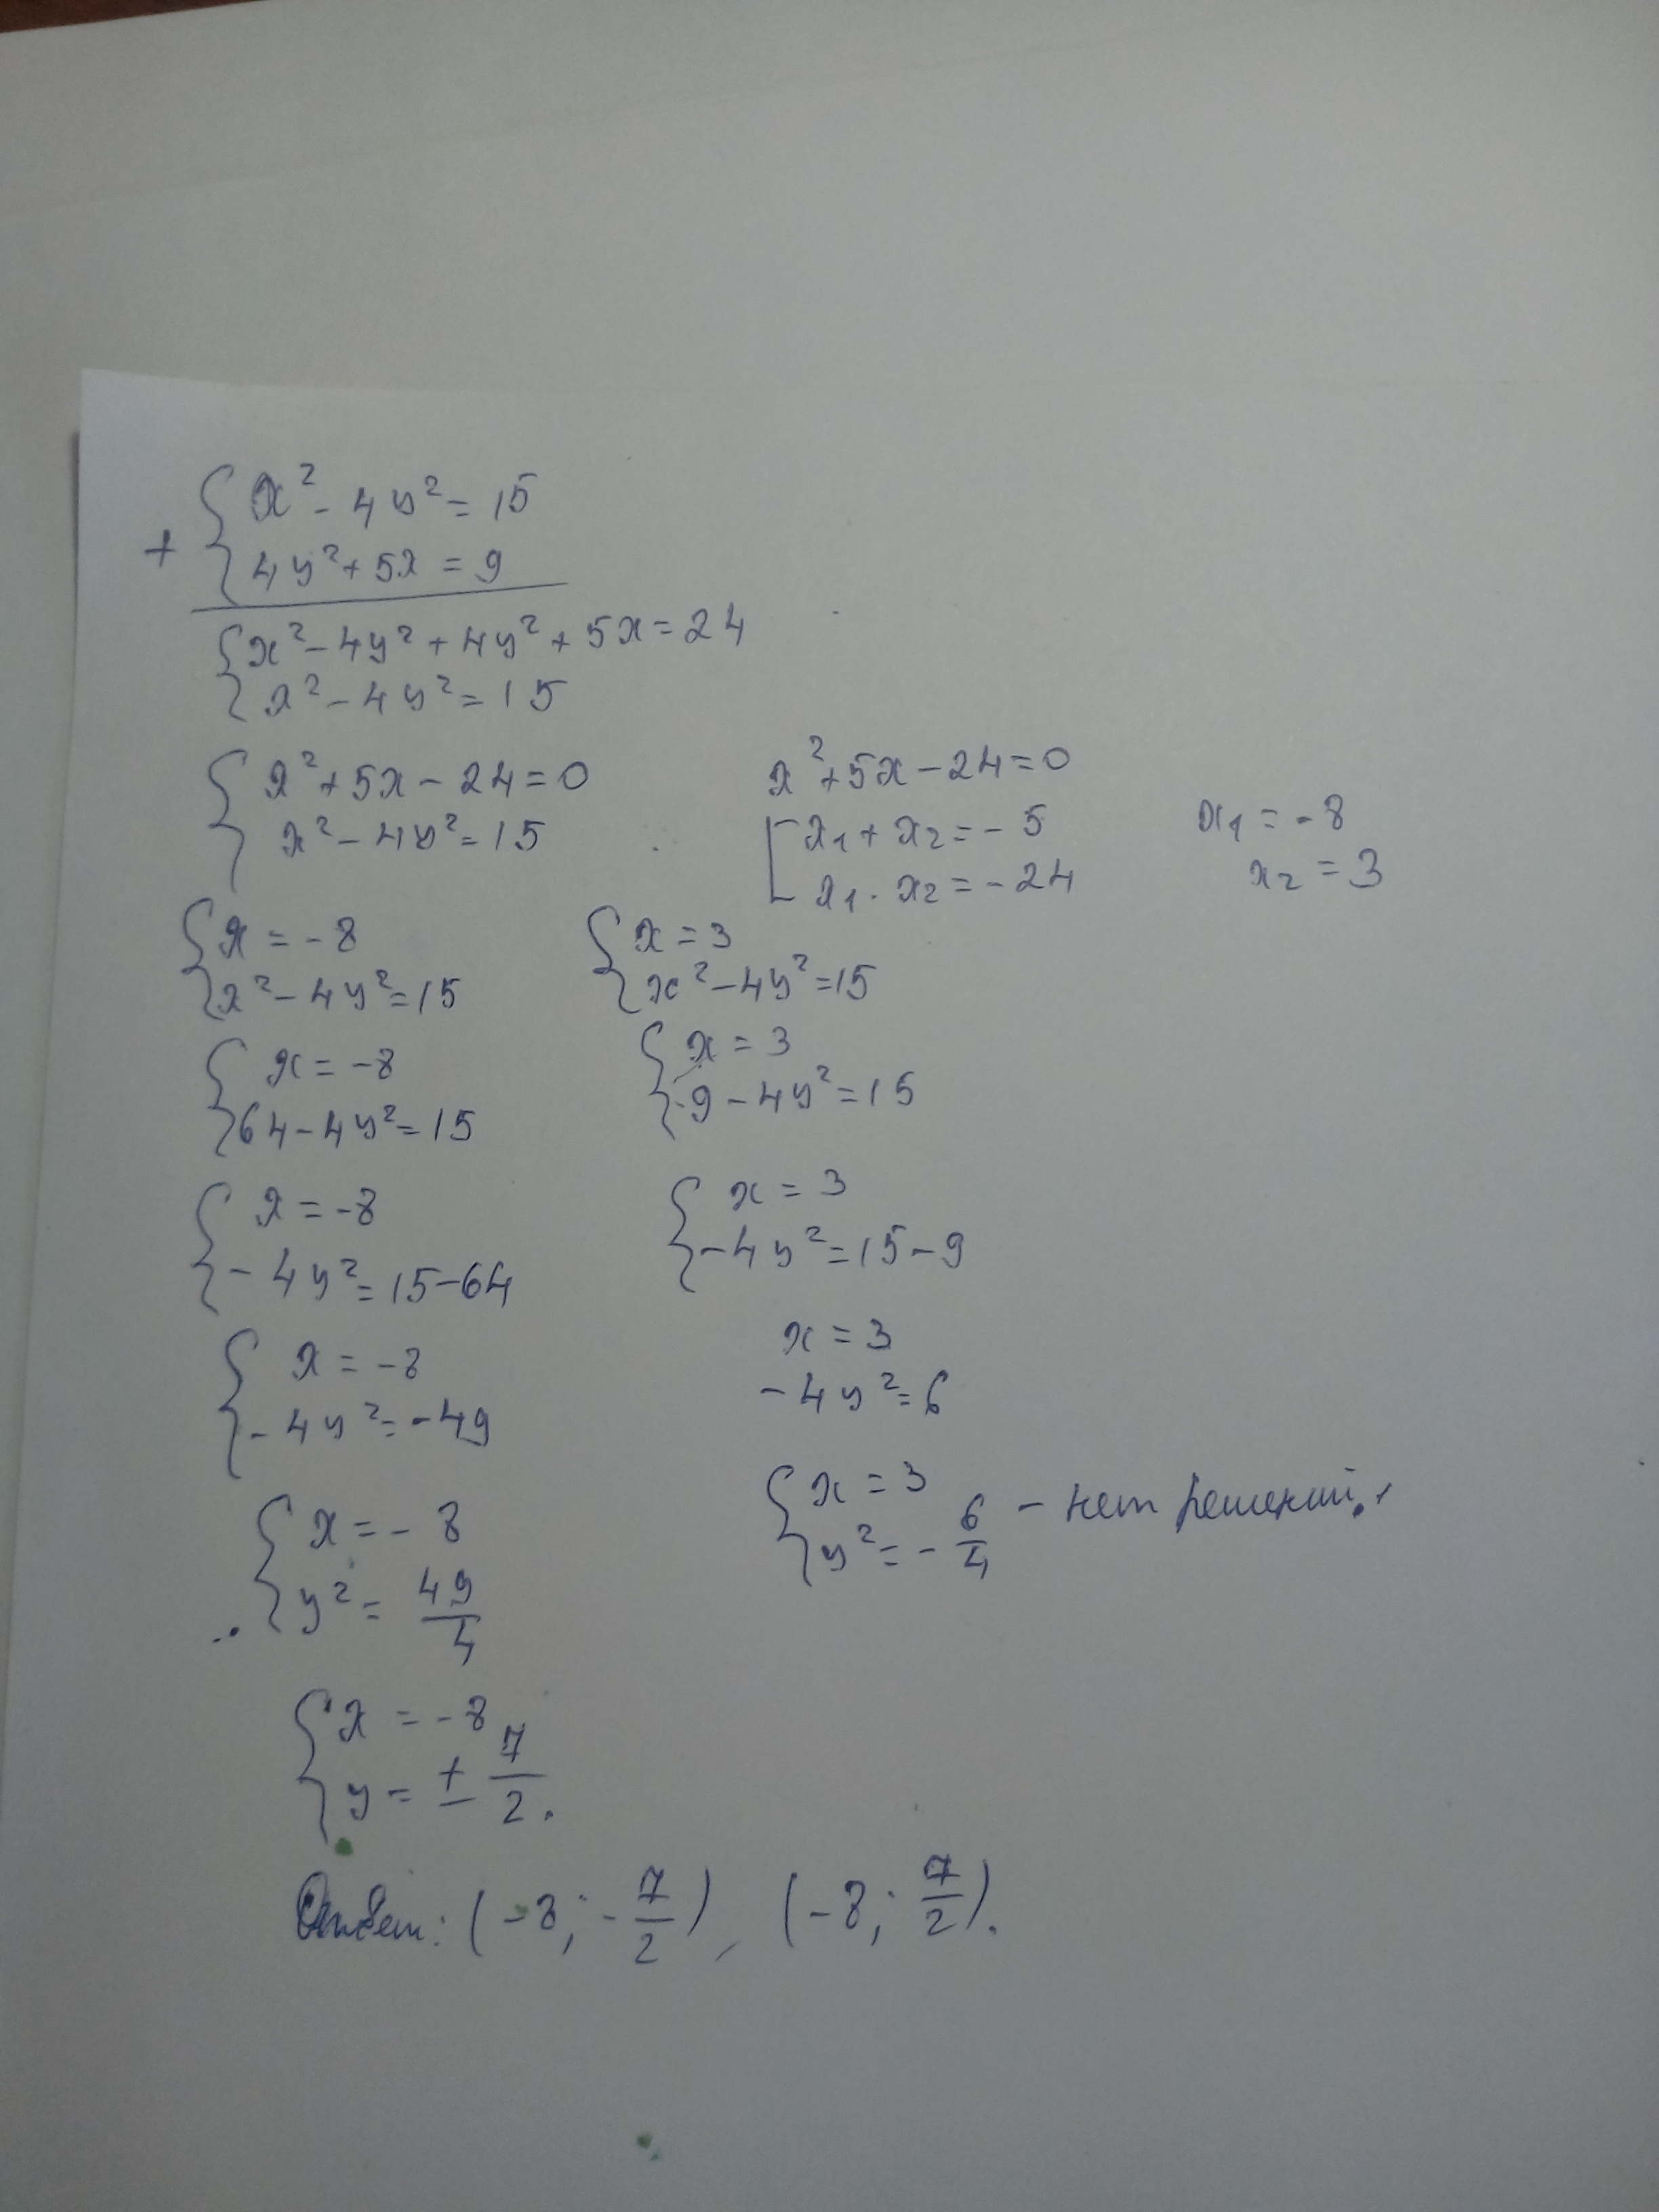 + { x² - 4y² = 15
4y² + 5x = 9
{ x² - 4y² + 4y² + 5x = 24
x² - 4y² = 15
{ x² + 5x - 24 = 0
x² - 4y² = 15
x² + 5x - 24 = 0
[ x₁ + x₂ = -5
x₁ · x₂ = -24
x₁ = -8
x₂ = 3
{ x = -8
x² - 4y² = 15
{ x = -8
64 - 4y² = 15
{ x = -8
-4y² = 15 - 64
{ x = -8
-4y² = -49
{ x = -8
y² = 49/4
{ x = -8
y = ± 7/2.
{ x = 3
x² - 4y² = 15
{ x = 3
9 - 4y² = 15
{ x = 3
-4y² = 15 - 9
x = 3
-4y² = 6
{ x = 3
y² = - 6/4 - нет решений.
Ответ: (-8; -7/2), (-8; 7/2).